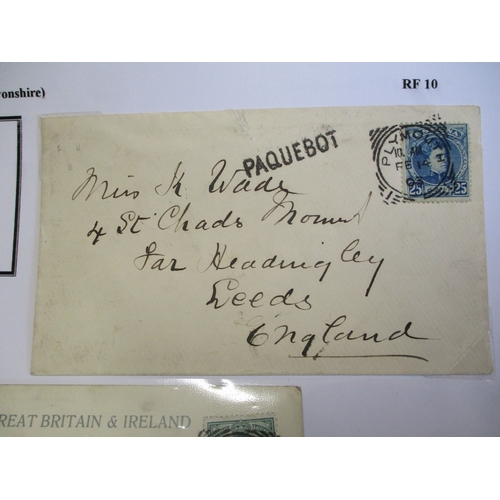 onshire)
RF 10
PAQUEBOT
PLYMOU
25 25
Miss K Wade
4 St Chads Mount
Far Headingley
Leeds
England
REAT BRITAIN & IRELAND